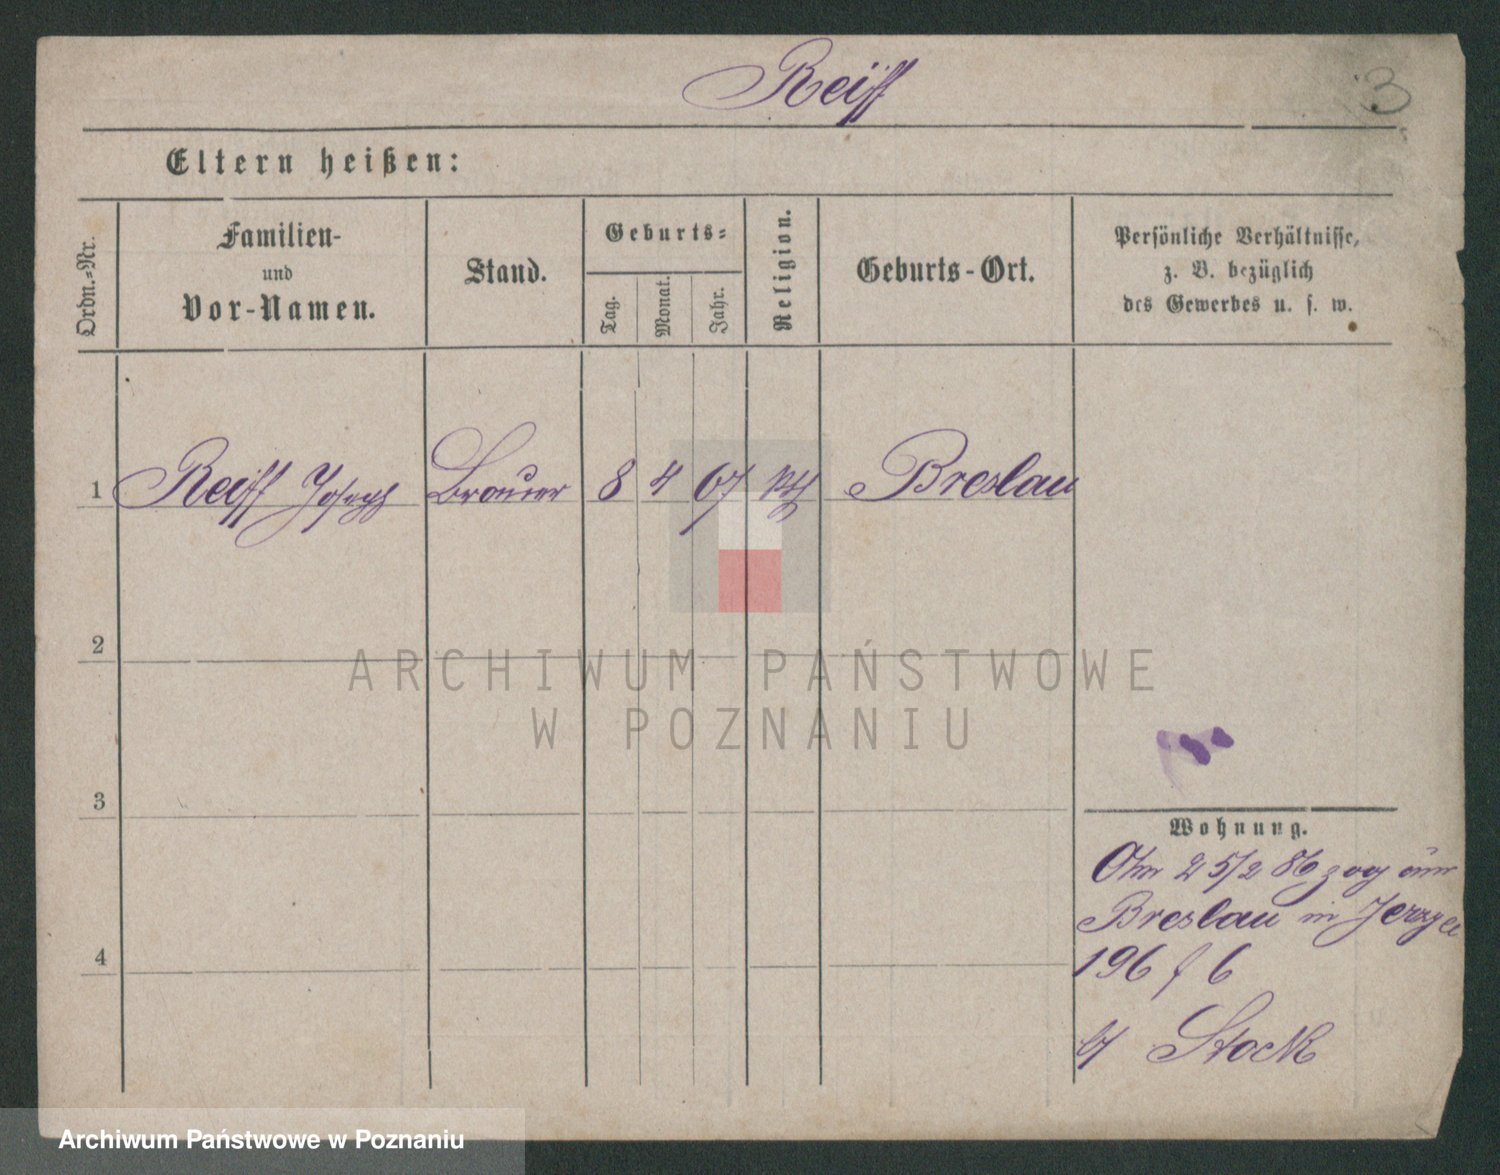 Reiff
3
Eltern heißen:
Ordn.-Nr.
Familien-
und
Vor-Namen.
Stand.
Geburts-
Tag.
Monat.
Jahr.
Religion.
Geburts-Ort.
Persönliche Verhältnisse,
z. B. bezüglich
des Gewerbes u. s. w.
1 Reiff Joseph Brauer 8 4 67 Breslau
2
ARCHIWUM PAŃSTWOWE
W POZNANIU
3
Wohnung.
25/2 86 zog
Breslau in
4
196 f 6
Stock
Archiwum Państwowe w Poznaniu